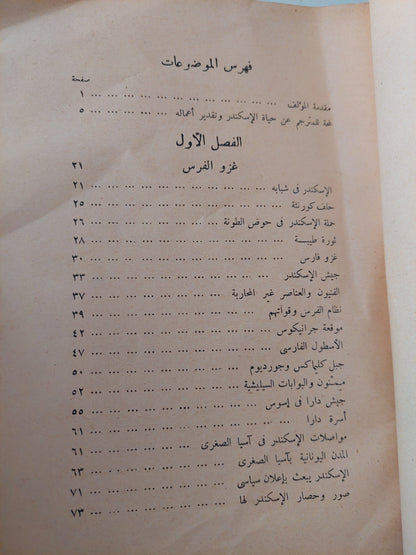 فهرس الموضوعات
صفحة
مقدمة المؤلف ... ... ... ... ... ... ... ... ... ... ١
لمحة للمترجم عن حياة الإسكندر وتقدير أعماله ... ... ... ٥
الفصل الأول
غزو الفرس ٢١
الإسكندر فى شبابه ... ... ... ... ... ... ... ... ... ٢١
حلف كورنثة ... ... ... ... ... ... ... ... ... ... ٢٥
حملة الإسكندر فى حوض الطونة ... ... ... ... ... ... ٢٦
ثورة طيبة ... ... ... ... ... ... ... ... ... ... ٢٨
غزو فارس ... ... ... ... ... ... ... ... ... ... ٣٠
جيش الإسكندر ... ... ... ... ... ... ... ... ... ٣٣
الفنيون والعناصر غير المحاربة ... ... ... ... ... ... ٣٧
نظام الفرس وقواتهم ... ... ... ... ... ... ... ... ٣٩
موقعة جرانيكوس ... ... ... ... ... ... ... ... ... ٤٢
الأسطول الفارسى ... ... ... ... ... ... ... ... ... ٤٧
جبل كليماكس وجورديوم ... ... ... ... ... ... ... ٥٠
ميمنون والبوابات السيليشية ... ... ... ... ... ... ... ٥٢
جيش دارا فى إسوس ... ... ... ... ... ... ... ... ٥٥
أسرة دارا ... ... ... ... ... ... ... ... ... ... ٦١
مواصلات الإسكندر فى آسيا الصغرى ... ... ... ... ... ٦١
المدن اليونانية بآسيا الصغرى ... ... ... ... ... ... ٦٣
الإسكندر يبعث بإعلان سياسى ... ... ... ... ... ... ٧١
صور وحصار الإسكندر لها ... ... ... ... ... ... ... ٧٣